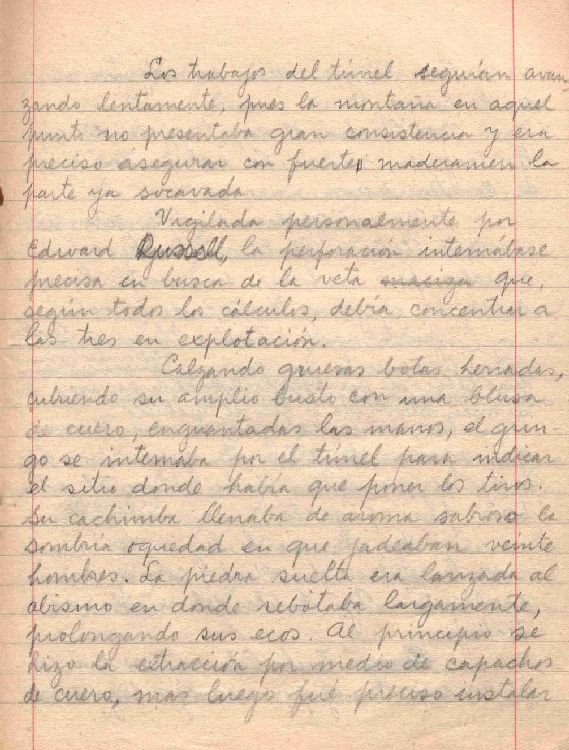 Los trabajos del túnel seguían avan-
zando lentamente, pues la montaña en aquel
punto no presentaba gran consistencia y era
preciso asegurar con fuerte maderamen la
parte ya socavada
Vigilada personalmente por
Edward Russell, la perforación internábase
precisa en busca de la veta maciza que,
según todos los cálculos, debía concentrar a
las tres en explotación.
Calzando gruesas botas herradas,
cubriendo su amplio busto con una blusa
de cuero, enguantadas las manos, el grin-
go se internaba por el túnel para indicar
el sitio donde había que poner los tiros.
Su cachimba llenaba de aroma sabroso la
sombría oquedad en que jadeaban veinte
hombres. La piedra suelta era lanzada al
abismo en donde rebotaba largamente,
prolongando sus ecos. Al principio se
hizo la extracción por medio de capachos
de cuero, mas luego fué preciso instalar